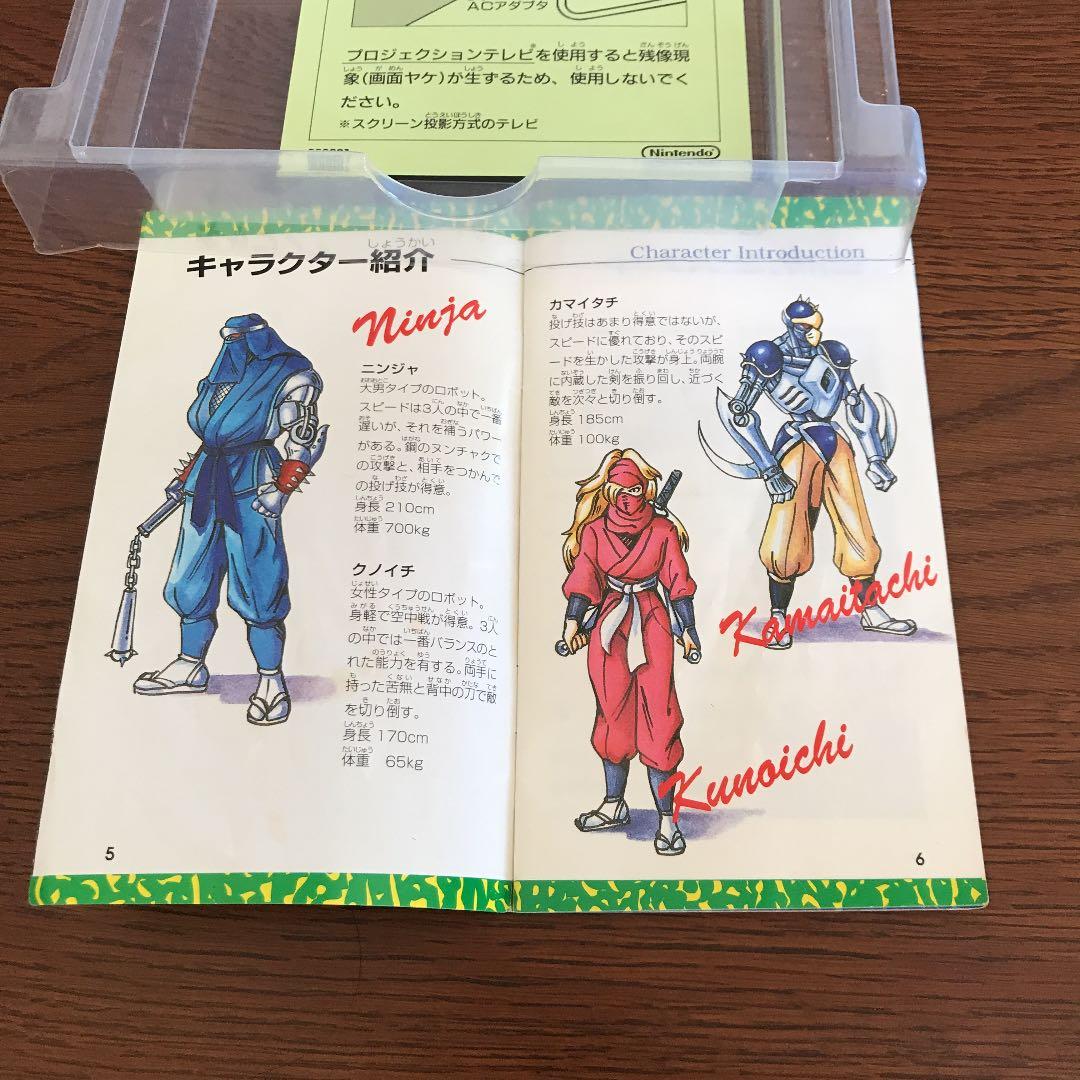 ACアダプタ
プロジェクションテレビを使用すると残像現
象(画面ヤケ)が生ずるため、使用しないでく
ださい。
※スクリーン投影方式のテレビ
Nintendo
キャラクター紹介
Ninja
ニンジャ
大男タイプのロボット。
スピードは3人の中で一番
遅いが、それを補うパワー
がある。鋼のヌンチャクで
の攻撃と、相手をつかんで
の投げ技が得意。
身長 210cm
体重 700kg
クノイチ
女性タイプのロボット。
身軽で空中戦が得意。3人
の中では一番バランスのと
れた能力を有する。両手に
持った苦無と背中の刀で敵
を切り倒す。
身長 170cm
体重 65kg
5
Character Introduction
カマイタチ
投げ技はあまり得意ではないが、
スピードに優れており、そのスピ
ードを生かした攻撃が身上。両腕
に内蔵した剣を振り回し、近づく
敵を次々と切り倒す。
身長 185cm
体重 100kg
Kamaitachi
Kunoichi
6